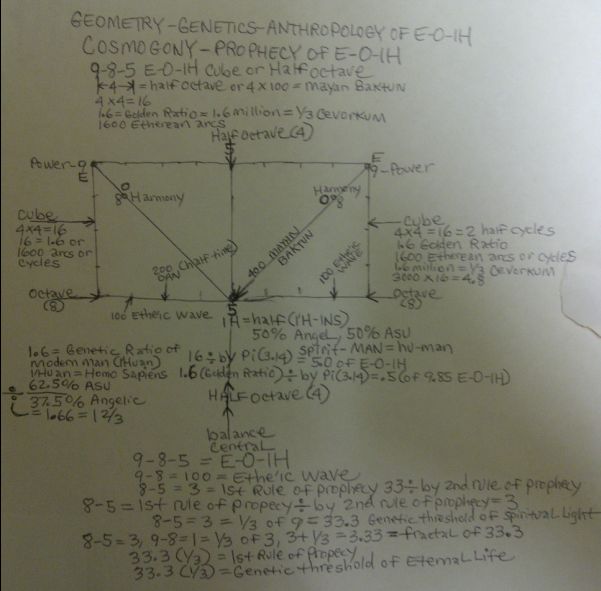 GEOMETRY-GENETICS-ANTHROPOLOGY OF E-O-IH
COSMOGONY-PROPHECY OF E-O-IH
9-8-5 E-O-IH Cube or Half octave
4 = half octave or 4 x 100 = mayan BAKTUN
4 x 4 = 16
1.6 = Golden Ratio = 1.6 million = 1/3 Cevorkum
1600 Etherean arcs
Half Octave (4)
5
Power-9
E
E
9-Power
O
8 Harmony
Harmony
O 8
Cube
4x4=16
16 = 1.6 or
1600 arcs or
cycles
Cube
4x4=16=2 half cycles
1.6 Golden Ratio
1600 Etherean arcs or cycles
1.6 million = 1/3 Cevorkum
3000 x 16 = 4.8
200 (half-time)
DAN
400 MAYAN
BAKTUN
100 Etheic
WAVE
Octave
(8)
100 Etheic Wave
5
Octave
(8)
IH = half (I'H-INS)
50% Angel, 50% ASU
1.6 = Genetic Ratio of
modern man (IHuan)
IHuan = Homo Sapiens
62.5% ASU
÷ 37.5% Angelic
= 1.66 = 1 2/3
Spirit-MAN = hu-man
16 ÷ by Pi (3.14) = 5.0 of E-O-IH
1.6 (Golden Ratio) ÷ by Pi (3.14) = .5 (of 9.85 E-O-IH)
HALF Octave (4)
balance
Central
9-8-5 = E-O-IH
9-8 = 100 = Etheic Wave
8-5 = 3 = 1st Rule of prophecy 33 ÷ by 2nd rule of prophecy
8-5 = 1st rule of propecy ÷ by 2nd rule of prophecy = 3
8-5 = 3 = 1/3 of 9 = 33.3 Genetic threshold of Spiritual Light
8-5 = 3, 9-8 = 1 = 1/3 of 3, 3 + 1/3 = 3.33 = fractal of 33.3
33.3 (1/3) = 1st Rule of Propecy
33.3 (1/3) = Genetic threshold of Eternal Life